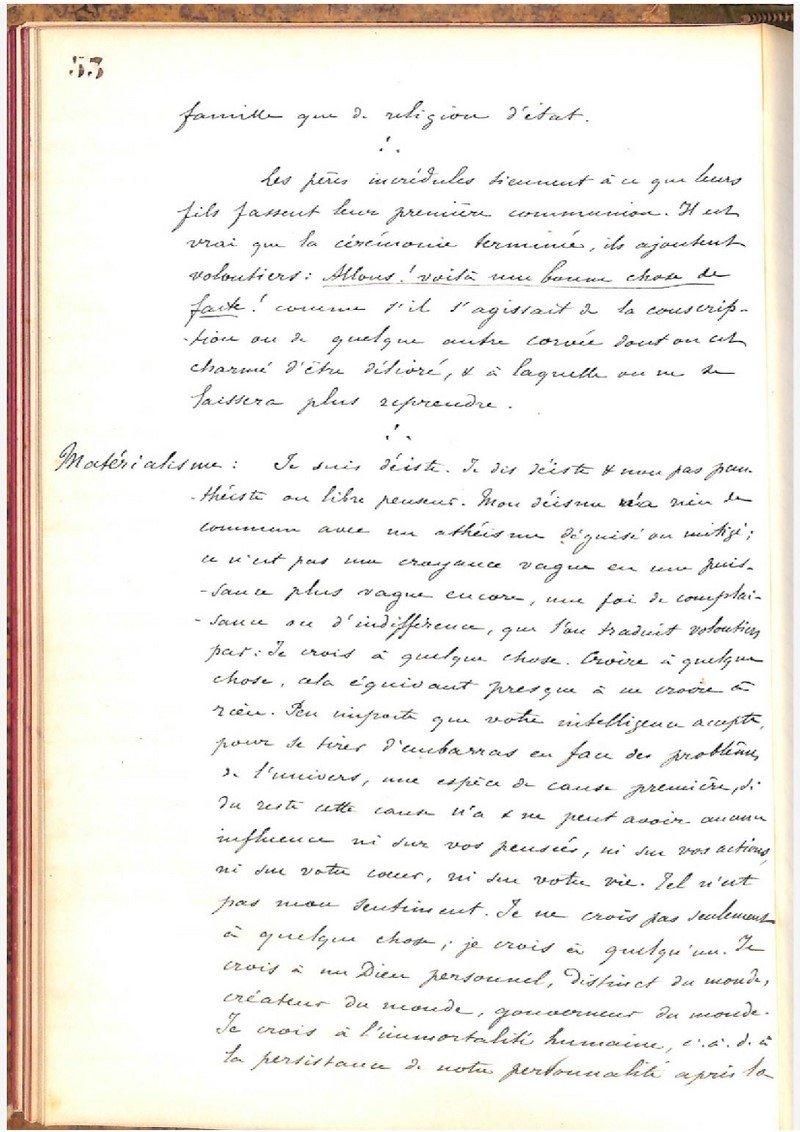 53
famille que de religion d'état.
Les pères incrédules tiennent à ce que leurs
fils fassent leur première communion. Il est
vrai que la cérémonie terminée, ils ajoutent
volontiers : Allons ! voilà une bonne chose de
faite ! comme s'il s'agissait de la conscrip-
-tion ou de quelque autre corvée dont on est
charmé d'être délivré, & à laquelle on ne se
laissera plus reprendre.
Matérialisme : Je suis déiste. Je dis déiste & non pas pan-
-théiste ou libre penseur. Mon déisme n'a rien de
commun avec un athéisme déguisé ou mitigé ;
ce n'est pas une croyance vague en une puis-
-sance plus vague encore, une foi de complai-
-sance ou d'indifférence, que l'on traduit volontiers
par : Je crois à quelque chose. Croire à quelque
chose, cela équivaut presque à ne croire à
rien. Peu importe que votre intelligence accepte,
pour se tirer d'embarras en face des problèmes
de l'univers, une espèce de cause première, si
du reste cette cause n'a & ne peut avoir aucune
influence ni sur vos pensées, ni sur vos actions,
ni sur votre cœur, ni sur votre vie. Tel n'est
pas mon sentiment. Je ne crois pas seulement
à quelque chose ; je crois à quelqu'un. Je
crois à un Dieu personnel, distinct du monde,
créateur du monde, gouverneur du monde.
Je crois à l'immortalité humaine, c.à.d. à
la persistance de notre personnalité après la